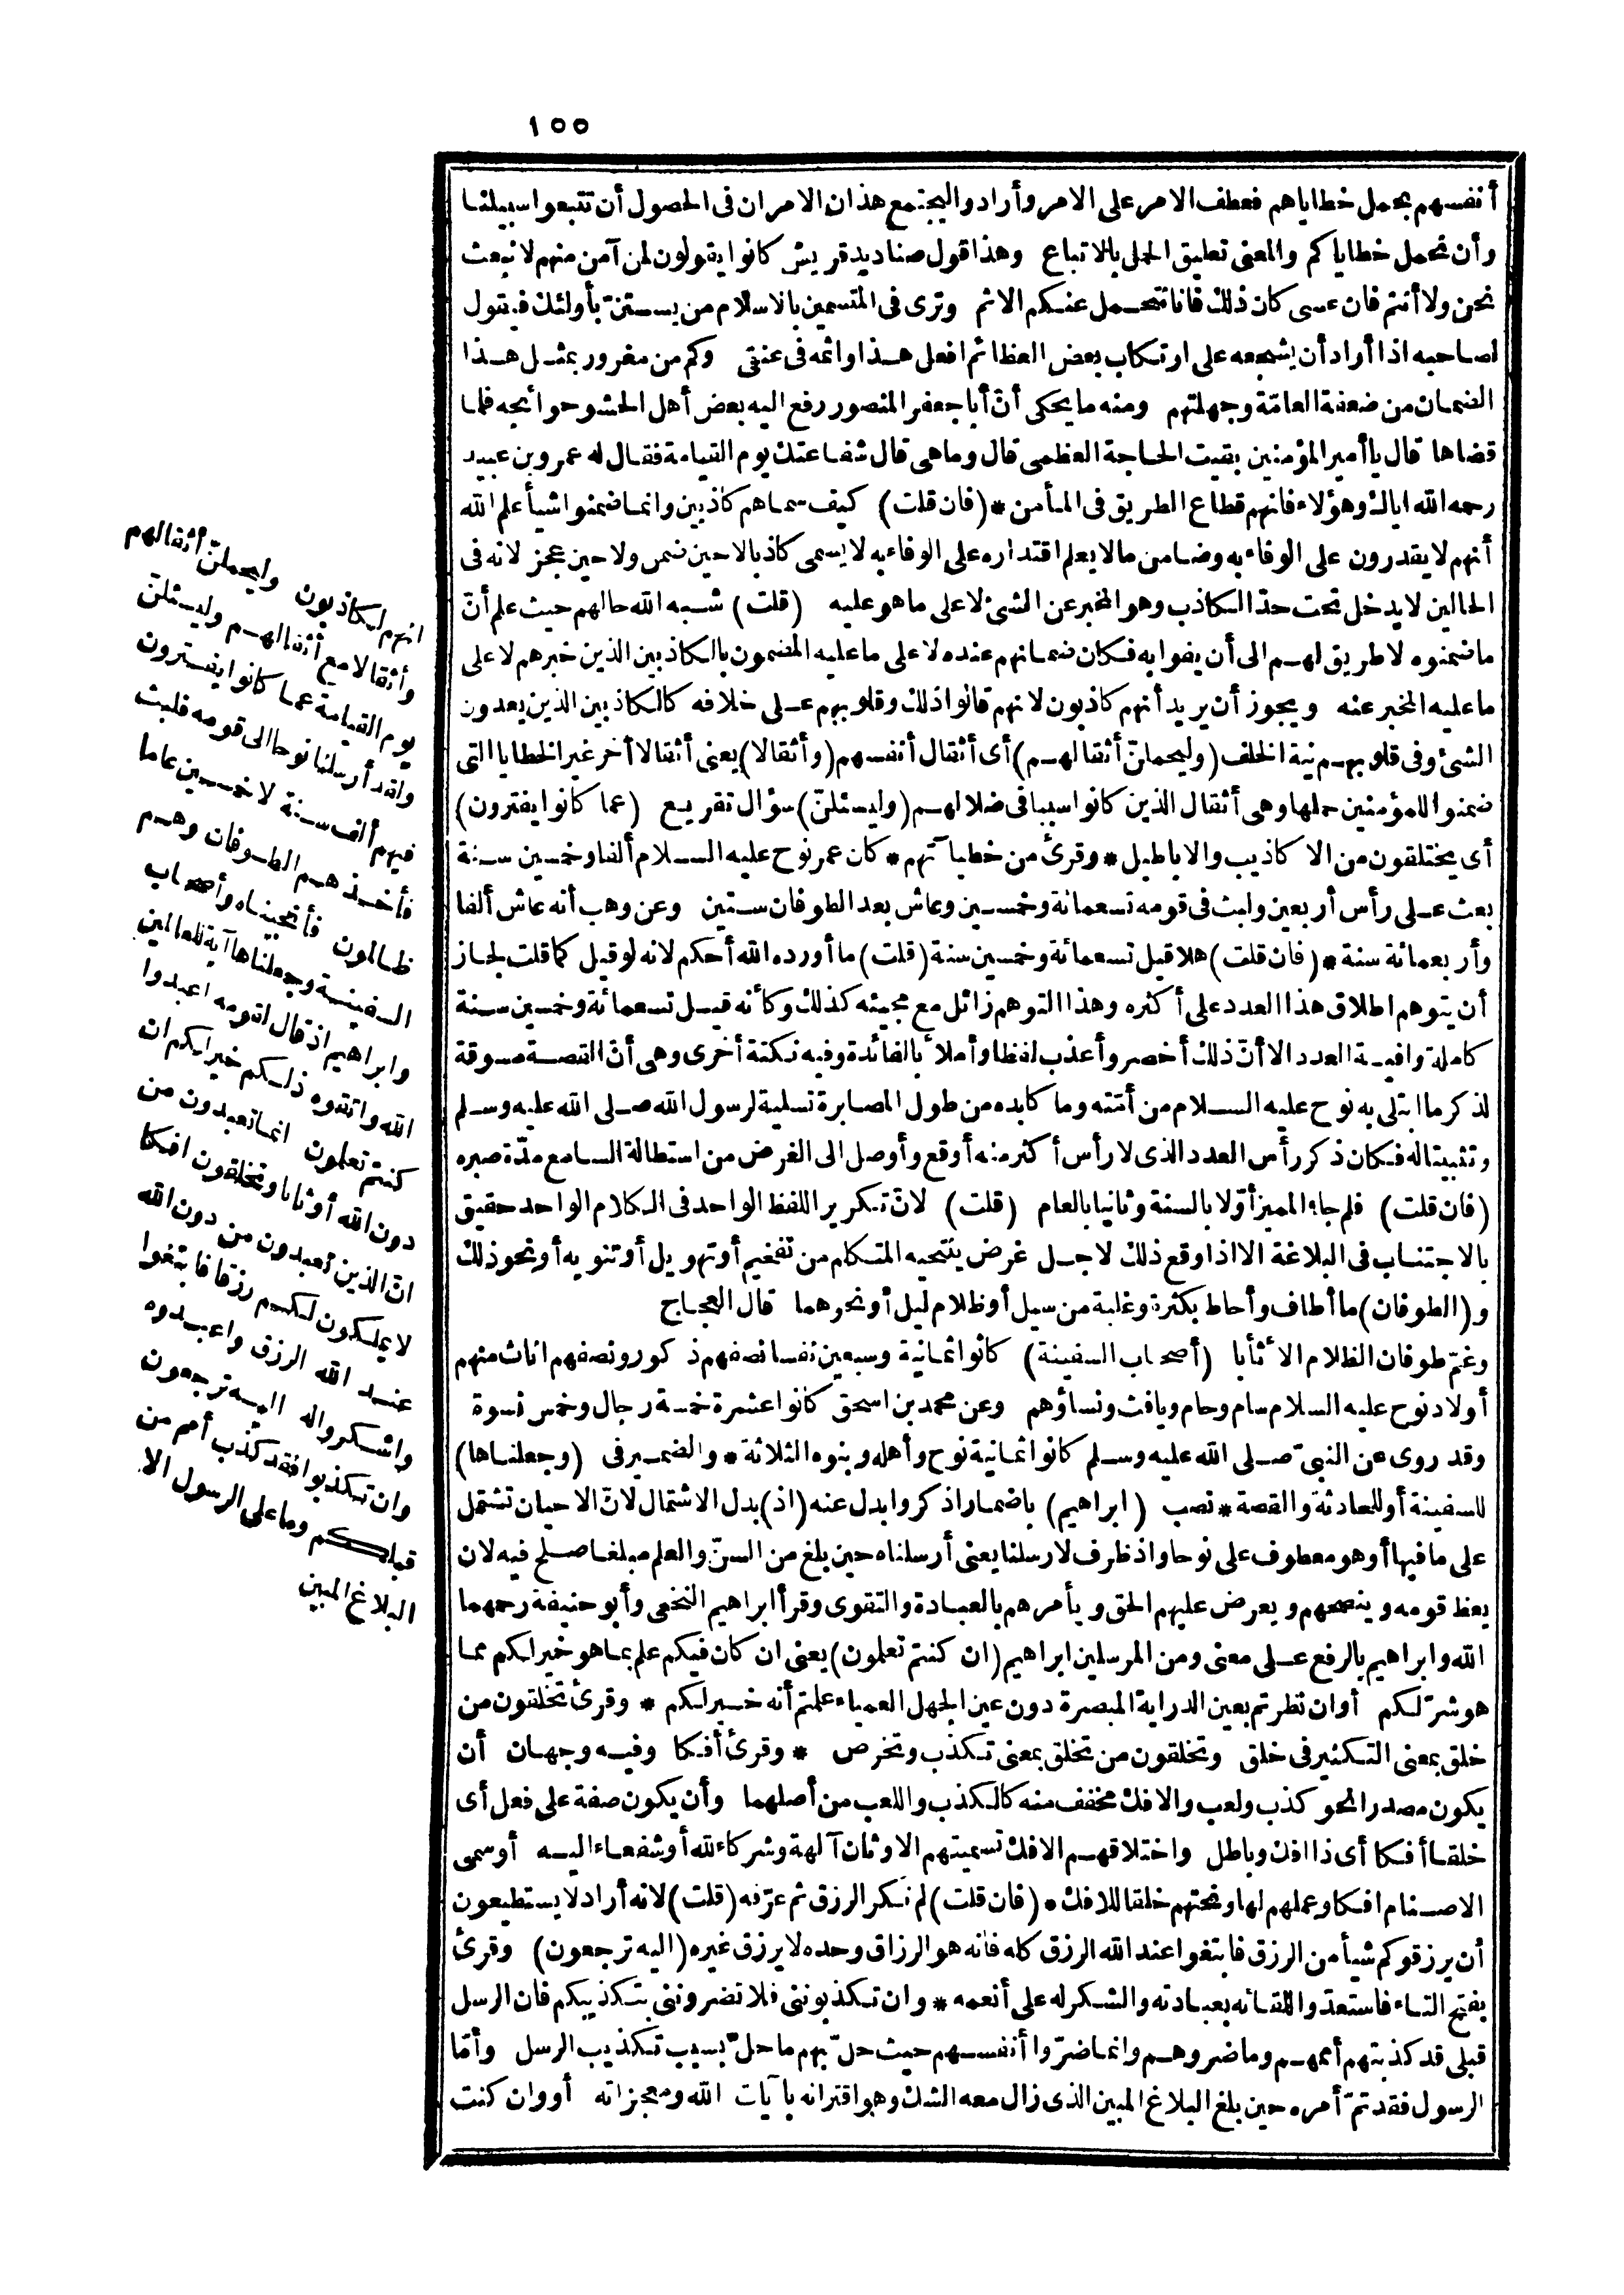 ١٥٥
أنفسهم بحمل خطاياهم فعطف الامر على الامر وأرادوا ليجتمع هذان الامران فى الحصول أن تتبعوا سبيلنا
وأن نحمل خطاياكم والمعنى تعليق الحمل بالاتباع وهذا قول صناديد قريش كانوا يقولون لمن آمن منهم لا نبعث
نحن ولا أنتم فان عسى كان ذلك فانا نتحمل عنكم الاثم وترى فى المتسمين بالاسلام من يستنّ بأولئك فيقول
لصاحبه اذا أراد أن يشجعه على ارتكاب بعض العظائم افعل هذا واثمه فى عنقى وكم من مغرور بمثل هذا
الضمان من ضعفة العامّة وجهلتهم ومنه ما يحكى أنّ أبا جعفر المنصور رفع اليه بعض أهل الحشو حوائجه فلما
قضاها قال يا أمير المؤمنين بقيت الحاجة العظمى قال وما هى قال شفاعتك يوم القيامة فقال له عمرو بن عبيد
رحمه الله اياك وهؤلاء فانهم قطاع الطريق فى المأمن * (فان قلت) كيف سماهم كاذبين وانما ضمنوا شيأ علم الله
أنهم لا يقدرون على الوفاء به وضامن ما لا يعلم اقتداره على الوفاء به لا يسمى كاذبا لا حين ضمن ولا حين عجز لانه فى
الحالين لا يدخل تحت حدّ الكاذب وهو المخبر عن الشئ لا على ما هو عليه (قلت) شبه الله حالهم حيث علم أنّ
ما ضمنوه لا طريق لهم الى أن يفوا به فكان ضمانهم عنده لا على ما عليه المضمون بالكاذبين الذين خبرهم لا على
ما عليه المخبر عنه ويجوز أن يريد أنهم كاذبون لانهم قالوا ذلك وقلوبهم على خلافه كالكاذبين الذين يعدون
الشئ وفى قلوبهم نية الخلف (وليحملنّ أثقالهم) أى أثقال أنفسهم (وأثقالا) يعنى أثقالا أخر غير الخطايا التى
ضمنوا للمؤمنين حملها وهى أثقال الذين كانوا سببا فى ضلالهم (وليسئلنّ) سؤال تقريع (عما كانوا يفترون)
أى يختلقون من الاكاذيب والاباطيل * وقرئ من خطيآتهم * كان عمر نوح عليه السلام ألفا وخمسين سنة
بعث على رأس أربعين ولبث فى قومه تسعمائة وخمسين وعاش بعد الطوفان ستين وعن وهب أنه عاش ألفا
وأربعمائة سنة * (فان قلت) هلا قيل تسعمائة وخمسين سنة (قلت) ما أورده الله أحكم لانه لو قيل كما قلت لجاز
أن يتوهم اطلاق هذا العدد على أكثره وهذا التوهم زائل مع مجيئه كذلك وكأنه قيل تسعمائة وخمسين سنة
كاملة وافية العدد الا أنّ ذلك أخصر وأعذب لفظا وأملأ بالفائدة وفيه نكتة أخرى وهى أنّ القصة مسوقة
لذكر ما ابتلى به نوح عليه السلام من أمّته وما كابده من طول المصابرة تسلية لرسول الله صلى الله عليه وسلم
وتثبيتا له فكان ذكر رأس العدد الذى لا رأس أكثر منه أوقع وأوصل الى الغرض من استطالة السامع مدّة صبره
(فان قلت) فلم جاء المميز أوّلا بالسنة وثانيا بالعام (قلت) لانّ تكرير اللفظ الواحد فى الكلام الواحد حقيق
بالاجتناب فى البلاغة الا اذا وقع ذلك لاجل غرض ينتحيه المتكلم من تفخيم أو تهويل أو تنويه أو نحو ذلك
و(الطوفان) ما أطاف وأحاط بكثرة وغلبة من سيل أو ظلام ليل أو نحوهما قال العجاج
وغمّ طوفان الظلام الاثأبا (أصحاب السفينة) كانوا ثمانية وسبعين نفسا نصفهم ذكور ونصفهم اناث منهم
أولاد نوح عليه السلام سام وحام ويافث ونساؤهم وعن محمد بن اسحق كانوا عشرة خمسة رجال وخمس نسوة
وقد روى عن النبىّ صلى الله عليه وسلم كانوا ثمانية نوح وأهله وبنوه الثلاثة * والضمير فى (وجعلناها)
للسفينة أو للحادثة والقصة * نصب (ابراهيم) باضمار اذكر وابدل عنه (اذ) بدل الاشتمال لانّ الاحيان تشتمل
على ما فيها أو هو معطوف على نوحا واذ ظرف لارسلنا يعنى أرسلناه حين بلغ من السنّ والعلم مبلغا صلح فيه لان
يعظ قومه وينصحهم ويعرض عليهم الحق ويأمرهم بالعبادة والتقوى وقرأ ابراهيم النخعى وأبو حنيفة رحمهما
الله وابراهيم بالرفع على معنى ومن المرسلين ابراهيم (ان كنتم تعلمون) يعنى ان كان فيكم علم بما هو خير لكم مما
هو شرّ لكم أو ان نظرتم بعين الدراية المبصرة دون عين الجهل العمياء علمتم أنه خير لكم * وقرئ تخلقون من
خلق بمعنى التكثير فى خلق وتخلقون من تخلق بمعنى تكذب وتخرص * وقرئ أفكا وفيه وجهان أن
يكون مصدرا نحو كذب ولعب والافك مخفف منه كالكذب واللعب من أصلهما وأن يكون صفة على فعل أى
خلقا أفكا أى ذا افك وباطل واختلاقهم الافك تسميتهم الاوثان آلهة وشركاء لله أو شفعاء اليه أو سمى
الاصنام افكا وعملهم لها ونحتهم خلقا للافك * (فان قلت) لم نكر الرزق ثم عرّفه (قلت) لانه أراد لا يستطيعون
أن يرزقوكم شيأ من الرزق فابتغوا عند الله الرزق كله فانه هو الرزاق وحده لا يرزق غيره (اليه ترجعون) وقرئ
بفتح التاء فاستعدّوا للقائه بعبادته والشكر له على أنعمه * وان تكذبوننى فلا تضروننى بتكذيبكم فان الرسل
قبلى قد كذبتهم أممهم وما ضروهم وانما ضرّوا أنفسهم حيث حلّ بهم ما حلّ بسبب تكذيب الرسل وأمّا
الرسول فقد تمّ أمره حين بلغ البلاغ المبين الذى زال معه الشك وهو اقترانه بآيات الله ومعجزاته أو وان كنت
انهم لكاذبون وليحملنّ أثقالهم
وأثقالا مع أثقالهم وليسئلنّ
يوم القيامة عما كانوا يفترون
ولقد أرسلنا نوحا الى قومه فلبث
فيهم ألف سنة الا خمسين عاما
فأخذهم الطوفان وهم
ظالمون فأنجيناه وأصحاب
السفينة وجعلناها آية للعالمين
وابراهيم اذ قال لقومه اعبدوا
الله واتقوه ذلكم خير لكم ان
كنتم تعلمون انما تعبدون من
دون الله أوثانا وتخلقون افكا
انّ الذين تعبدون من دون الله
لا يملكون لكم رزقا فابتغوا
عند الله الرزق واعبدوه
واشكروا له اليه ترجعون
وان تكذبوا فقد كذّب أمم من
قبلكم وما على الرسول الا
البلاغ المبين